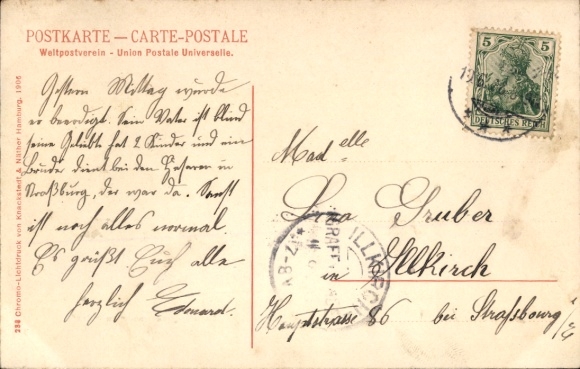 POSTKARTE — CARTE-POSTALE
Weltpostverein - Union Postale Universelle.
Gestern Mittag wurde
er beerdigt. Sein Vater ist blind
seine Geliebt hat 2 Kinder und ein
Bruder dient bei den Husaren in
Straßburg, der war da. Sonst
ist noch alles normal.
Es grüßt Euch alle
herzlich Edouard.
5 5
DEUTSCHES REICH
Madelle
Gruber
in Illkirch
Hauptstrasse 86 bei Strassbourg i/E
ILLKIRCH
GRAFE
238 Chromo-Lichtdruck von Knackstedt & Näther Hamburg. 1906